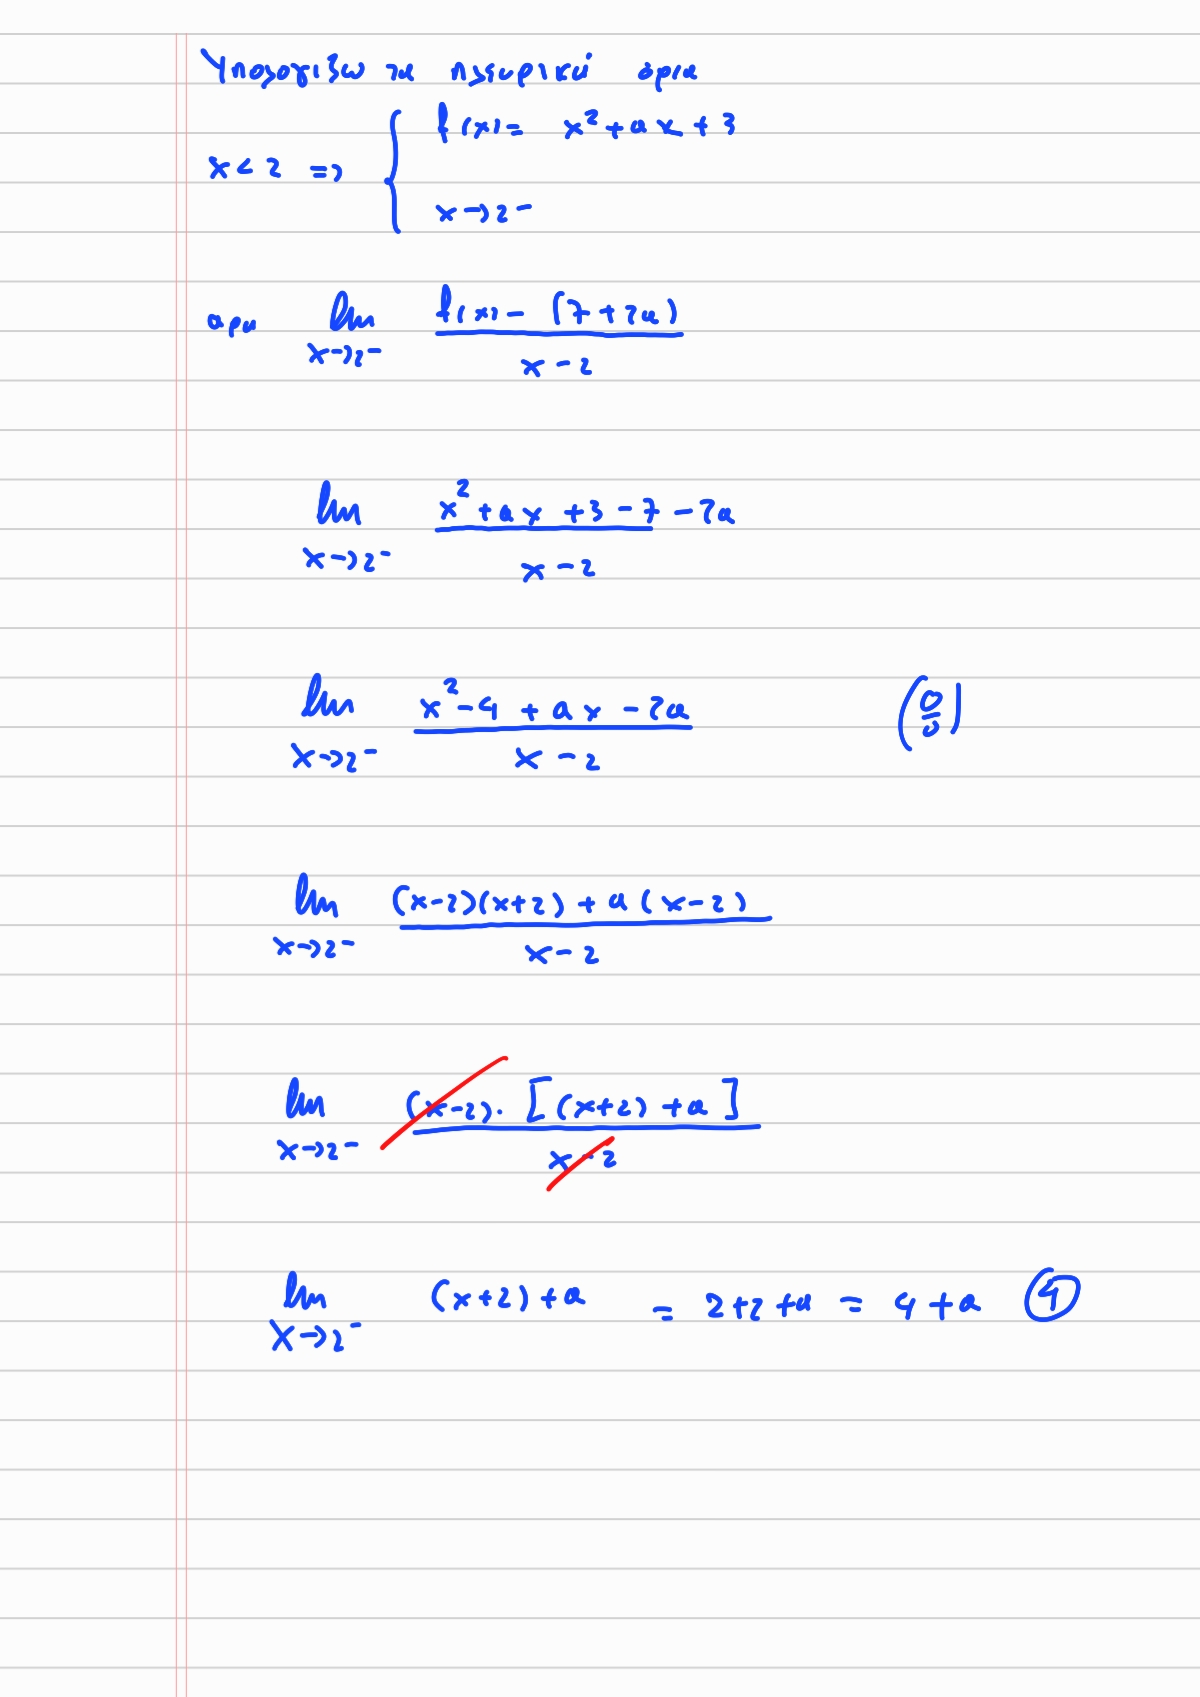 Υπολογιζω τα πλευρικά όρια
x < 2 => { f(x) = x² + αx + 3
x → 2⁻
αρα lim x→2⁻ (f(x) - (7 + 2α)) / (x - 2)
lim x→2⁻ (x² + αx + 3 - 7 - 2α) / (x - 2)
lim x→2⁻ (x² - 4 + αx - 2α) / (x - 2) (0/0)
lim x→2⁻ ((x-2)(x+2) + α(x-2)) / (x - 2)
lim x→2⁻ ((x-2)·[(x+2) + α]) / (x - 2)
lim x→2⁻ (x+2) + α = 2+2+α = 4+α ④